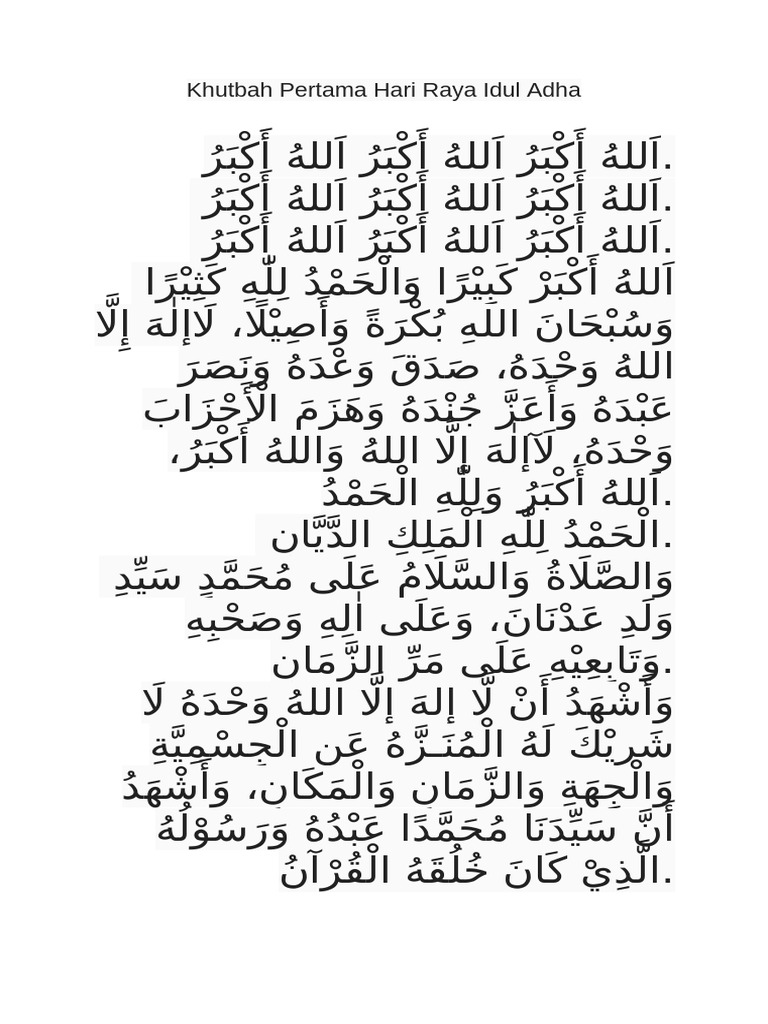 Khutbah Pertama Hari Raya Idul Adha
اَللهُ أَكْبَرُ اَللهُ أَكْبَرُ اَللهُ أَكْبَرُ.
اَللهُ أَكْبَرُ اَللهُ أَكْبَرُ اَللهُ أَكْبَرُ.
اَللهُ أَكْبَرُ اَللهُ أَكْبَرُ اَللهُ أَكْبَرُ.
اَللهُ أَكْبَرْ كَبِيْرًا وَالْحَمْدُ لِلّٰهِ كَثِيْرًا
وَسُبْحَانَ اللهِ بُكْرَةً وَأَصِيْلًا، لَاإِلٰهَ إِلَّا
اللهُ وَحْدَهُ، صَدَقَ وَعْدَهُ وَنَصَرَ
عَبْدَهُ وَأَعَزَّ جُنْدَهُ وَهَزَمَ الْأَحْزَابَ
وَحْدَهُ، لَآإِلٰهَ إِلَّا اللهُ وَاللهُ أَكْبَرُ،
اَللهُ أَكْبَرُ وَلِلّٰهِ الْحَمْدُ.
الْحَمْدُ لِلّٰهِ الْمَلِكِ الدَّيَّانِ.
وَالصَّلَاةُ وَالسَّلَامُ عَلَى مُحَمَّدٍ سَيِّدِ
وَلَدِ عَدْنَانَ، وَعَلَى اٰلِهِ وَصَحْبِهِ
وَتَابِعِيْهِ عَلَى مَرِّ الزَّمَانِ.
وَأَشْهَدُ أَنْ لَّا إِلهَ إِلَّا اللهُ وَحْدَهُ لَا
شَرِيْكَ لَهُ الْمُنَـزَّهُ عَنِ الْجِسْمِيَّةِ
وَالْجِهَةِ وَالزَّمَانِ وَالْمَكَانِ، وَأَشْهَدُ
أَنَّ سَيِّدَنَا مُحَمَّدًا عَبْدُهُ وَرَسُوْلُهُ
الَّذِيْ كَانَ خُلُقَهُ الْقُرْآنُ.